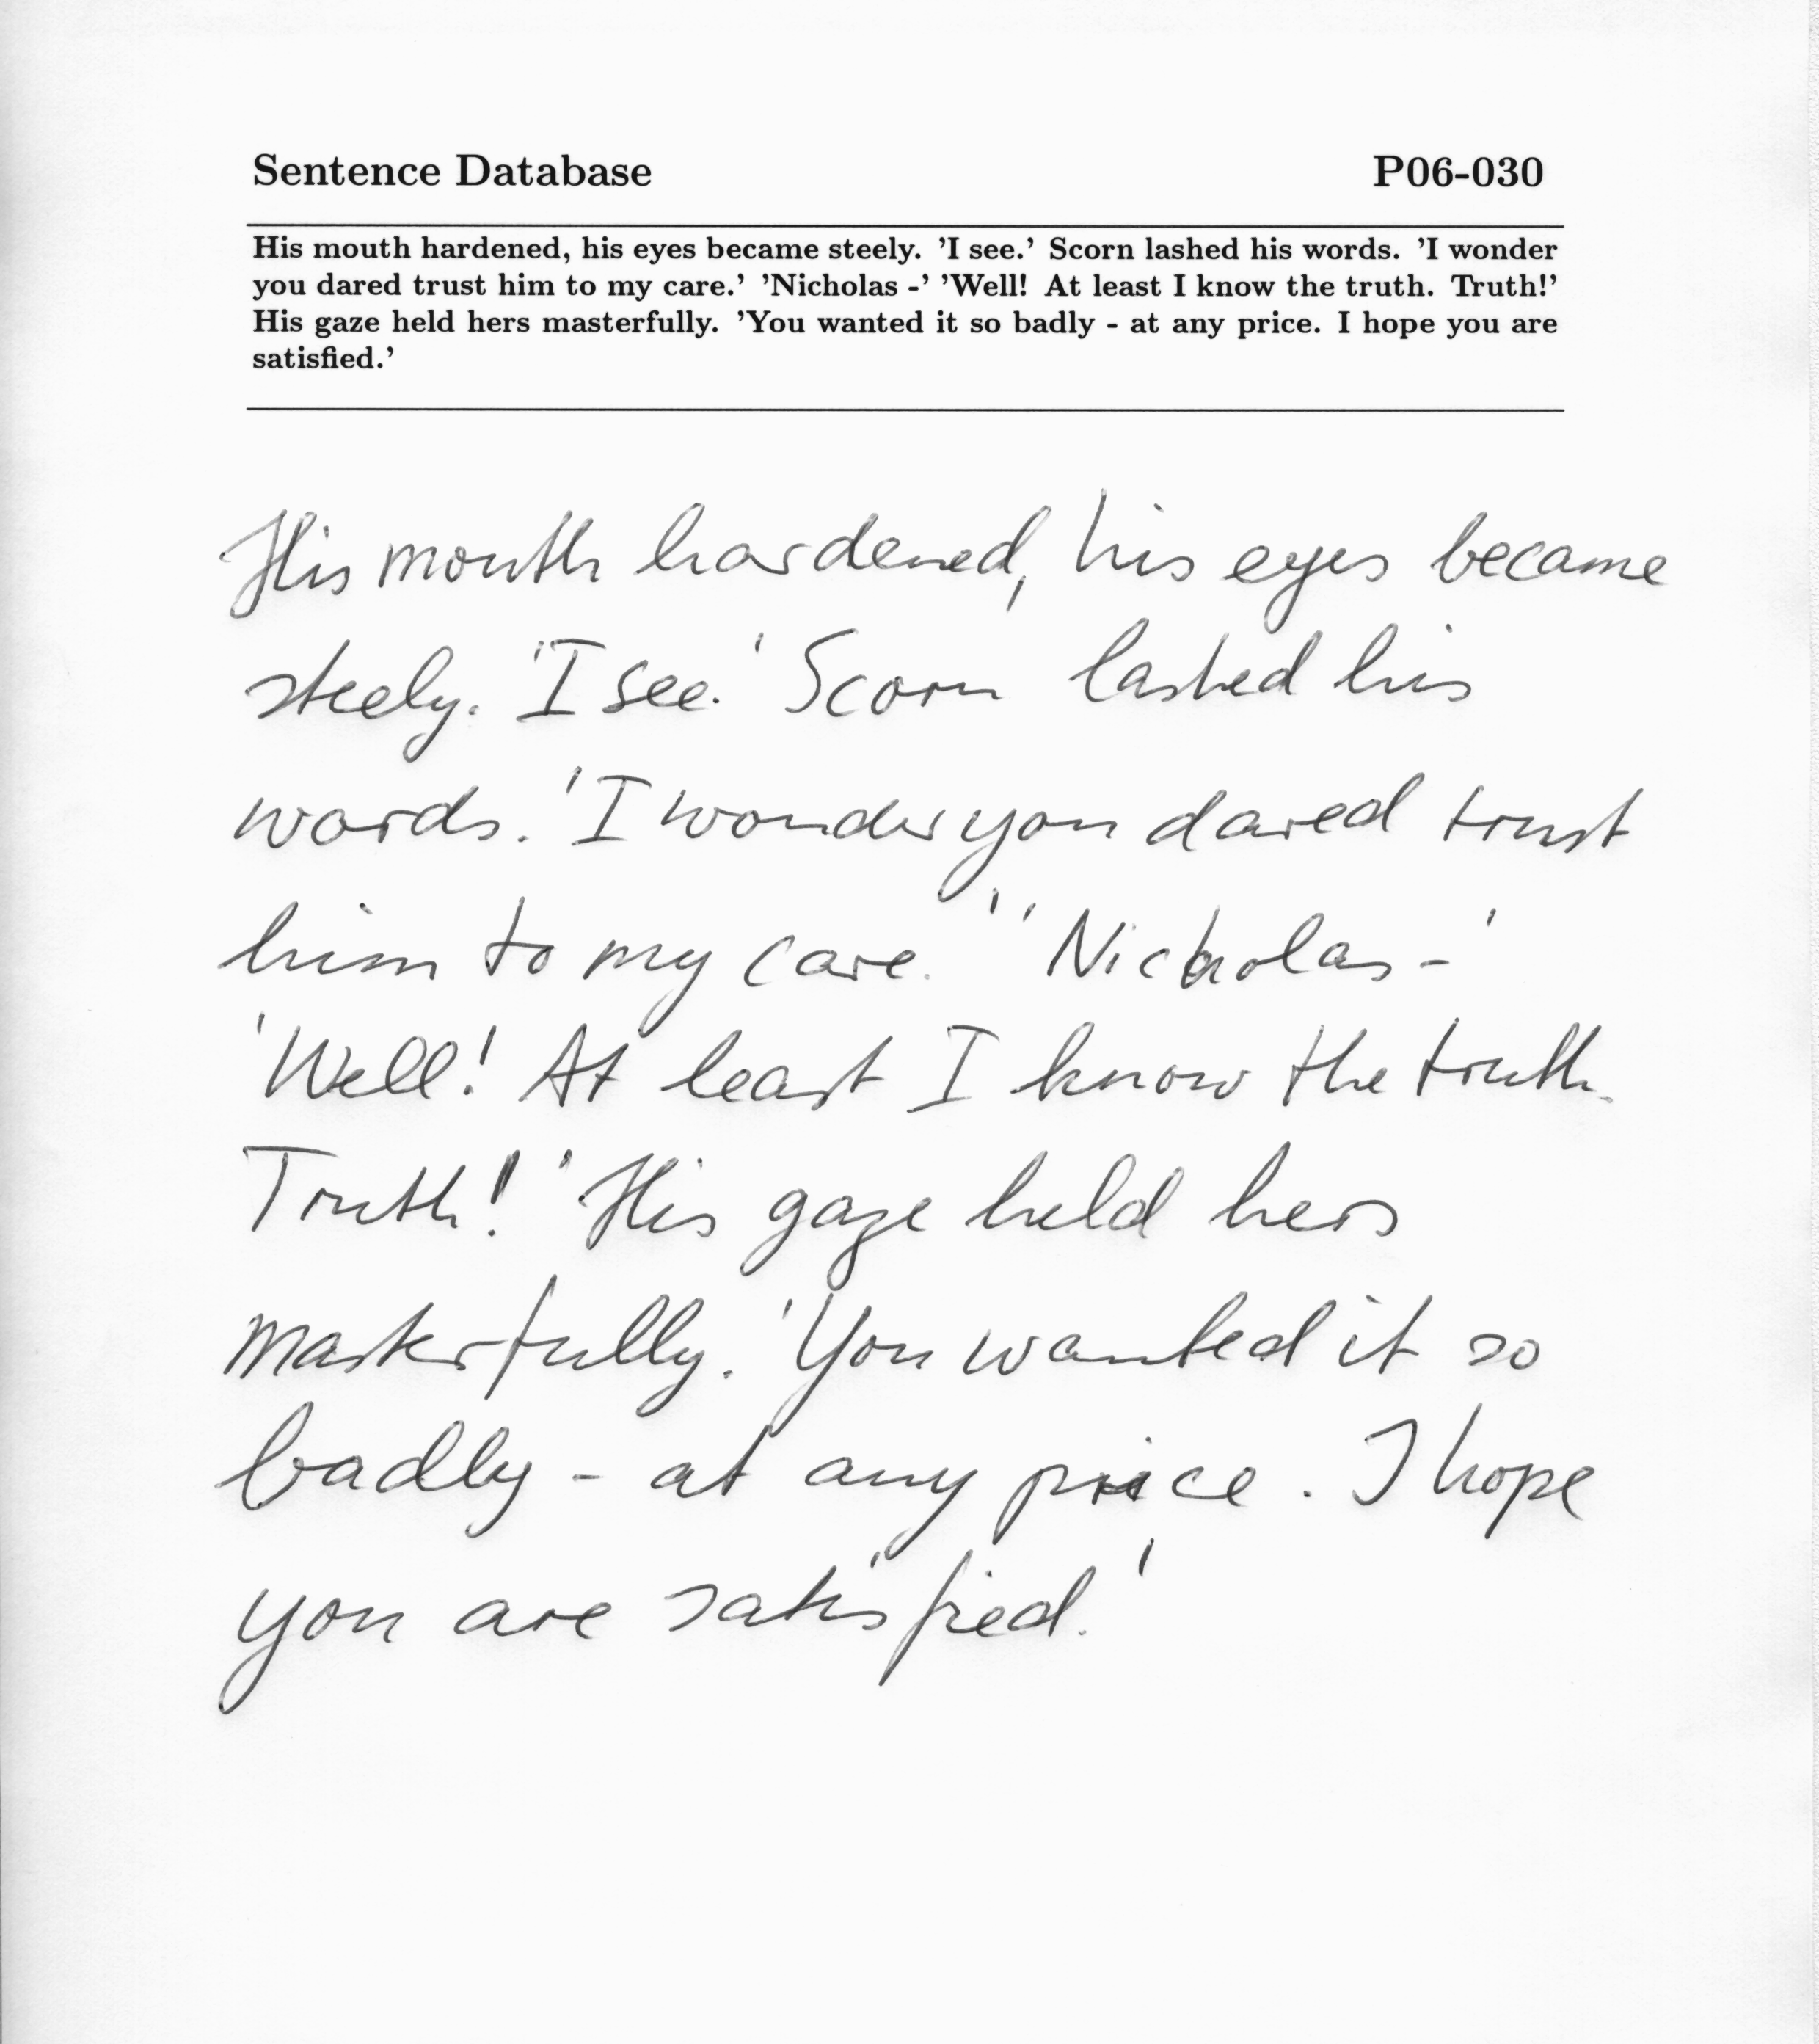 Sentence Database P06-030
His mouth hardened, his eyes became steely. 'I see.' Scorn lashed his words. 'I wonder
you dared trust him to my care.' 'Nicholas -' 'Well! At least I know the truth. Truth!'
His gaze held hers masterfully. 'You wanted it so badly - at any price. I hope you are
satisfied.'
His mouth hardened, his eyes became
steely. 'I see.' Scorn lashed his
words. 'I wonder you dared trust
him to my care.' 'Nicholas -'
'Well! At least I know the truth.
Truth!' His gaze held hers
masterfully. 'You wanted it so
badly - at any price. I hope
you are satisfied.'